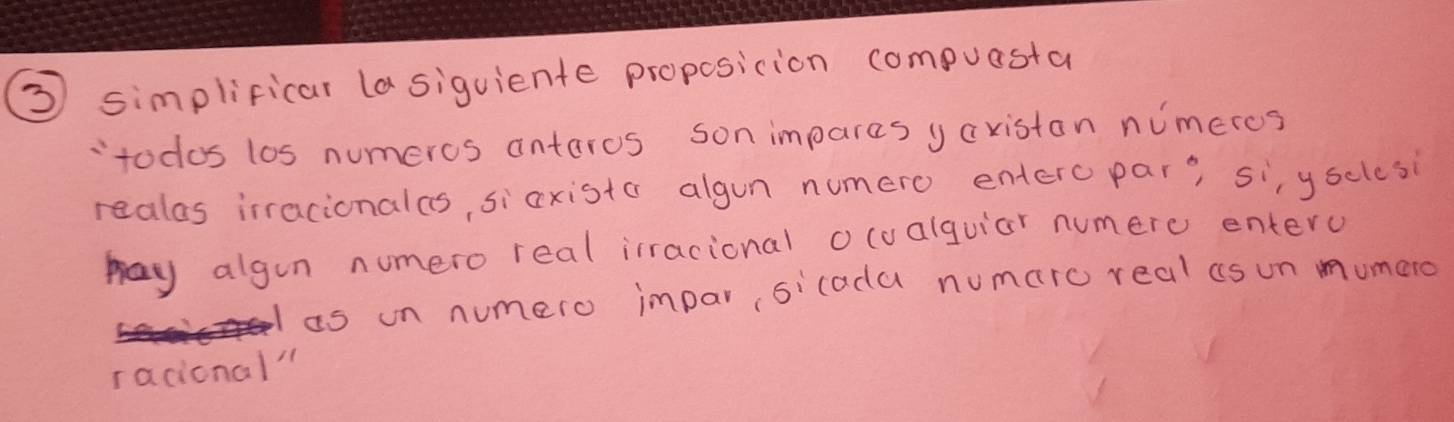 ③ simplificar la siguiente proposicion compuesta
"todos los numeros enteros son impares y existen números
reales irracionales, si existe algun numero entero par; si, y solo si
hay algun numero real irracional o cualquier numero entero
es un numero impar, si cada numero real es un numero
racional"